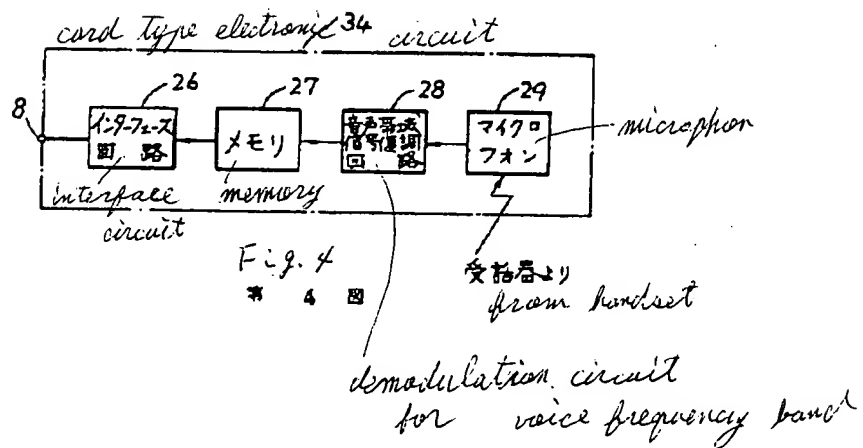 card type electronic 34 circuit
26 27 28 29
8
インターフェース
回路
メモリ
音声帯域
信号復調
回路
マイクロ
フォン
microphon
interface
circuit
memory
Fig. 4
第 4 図
受話器より
from handset
demodulation circuit
for voice frequency band